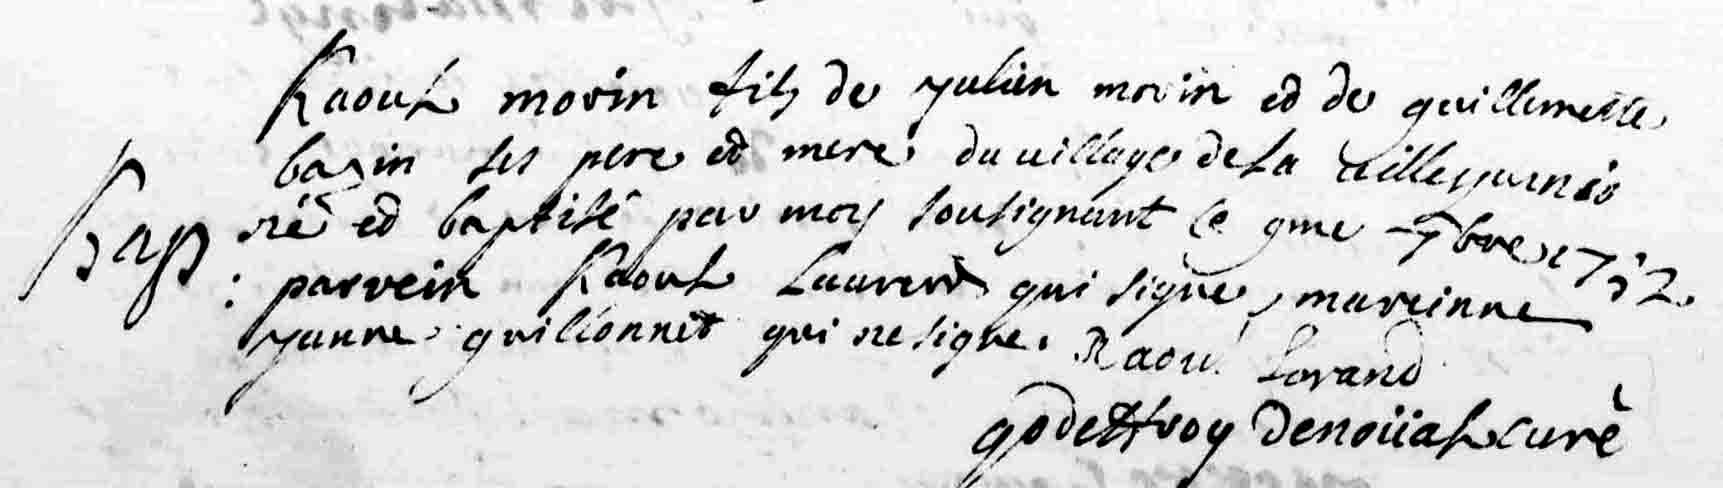 Raoul morin fils de yulien morin et de guillemette
bazin ses pere et mere du village de la
Bap né et baptisé par moy sousignant le 9me 7bre 1732
: parrein Raoul Laurent qui signe, mareinne
yanne guillonnet qui ne signe. Raoul Lorand
godeffroy Denoüal curé